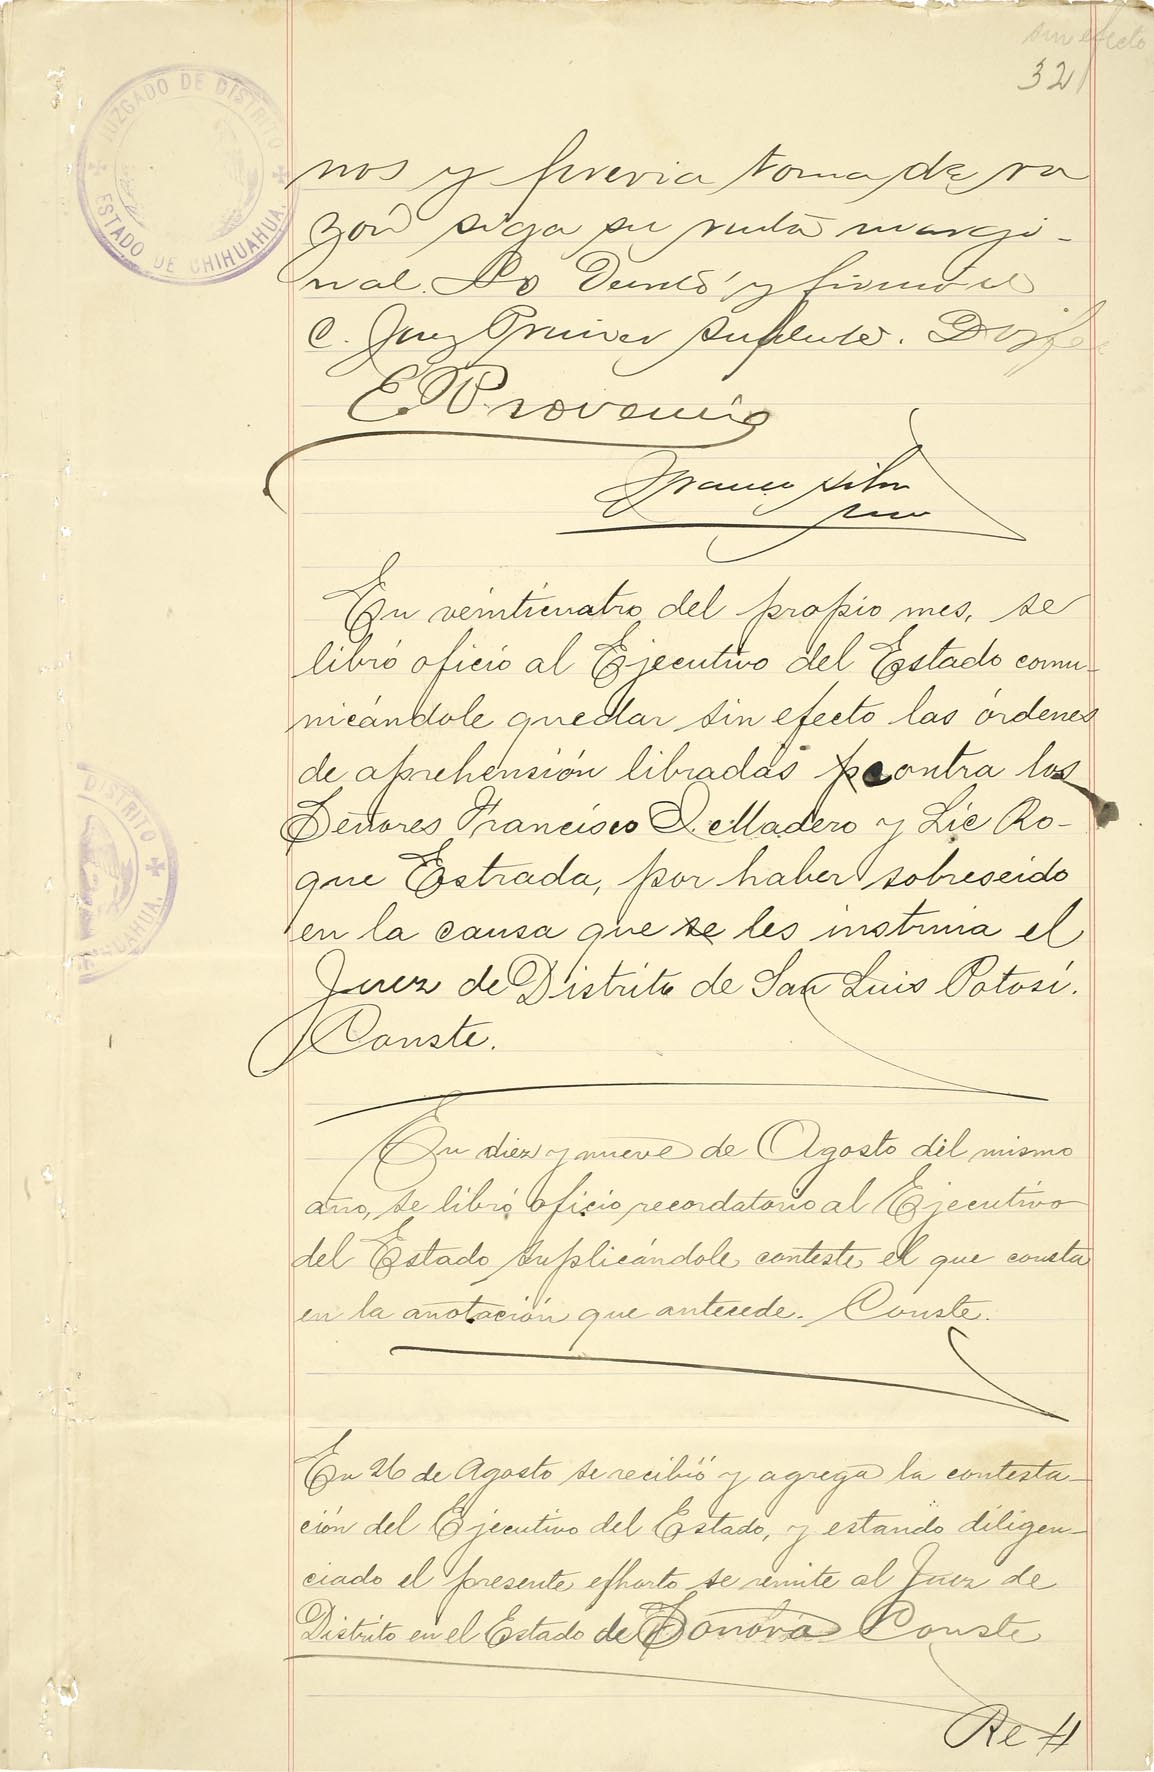 sin efecto
321
JUZGADO DE DISTRITO
ESTADO DE CHIHUAHUA.
nos y previa toma de ra
zón siga su ruta margi-
nal. Lo Decretó y firmó el
C. Juez Primer Suplente. Doy fe
E. Provencio
En veinticuatro del propio mes, se
libró oficio al Ejecutivo del Estado comu-
nicándole quedar sin efecto las órdenes
de aprehensión libradas contra los
Señores Francisco I. Madero y Lic Ro-
que Estrada, por haber sobreseido
en la causa que se les instruia el
Juez de Distrito de San Luis Potosí.
Conste.
DISTRITO
CHIHUAHUA.
En diez y nueve de Agosto del mismo
año, se libró oficio recordatorio al Ejecutivo
del Estado suplicándole conteste el que consta
en la anotación que antecede. Conste.
En 26 de Agosto se recibió y agrega la contesta-
ción del Ejecutivo del Estado, y estando diligen-
ciado el presente exhorto se remite al Juez de
Distrito en el Estado de Sonora Conste